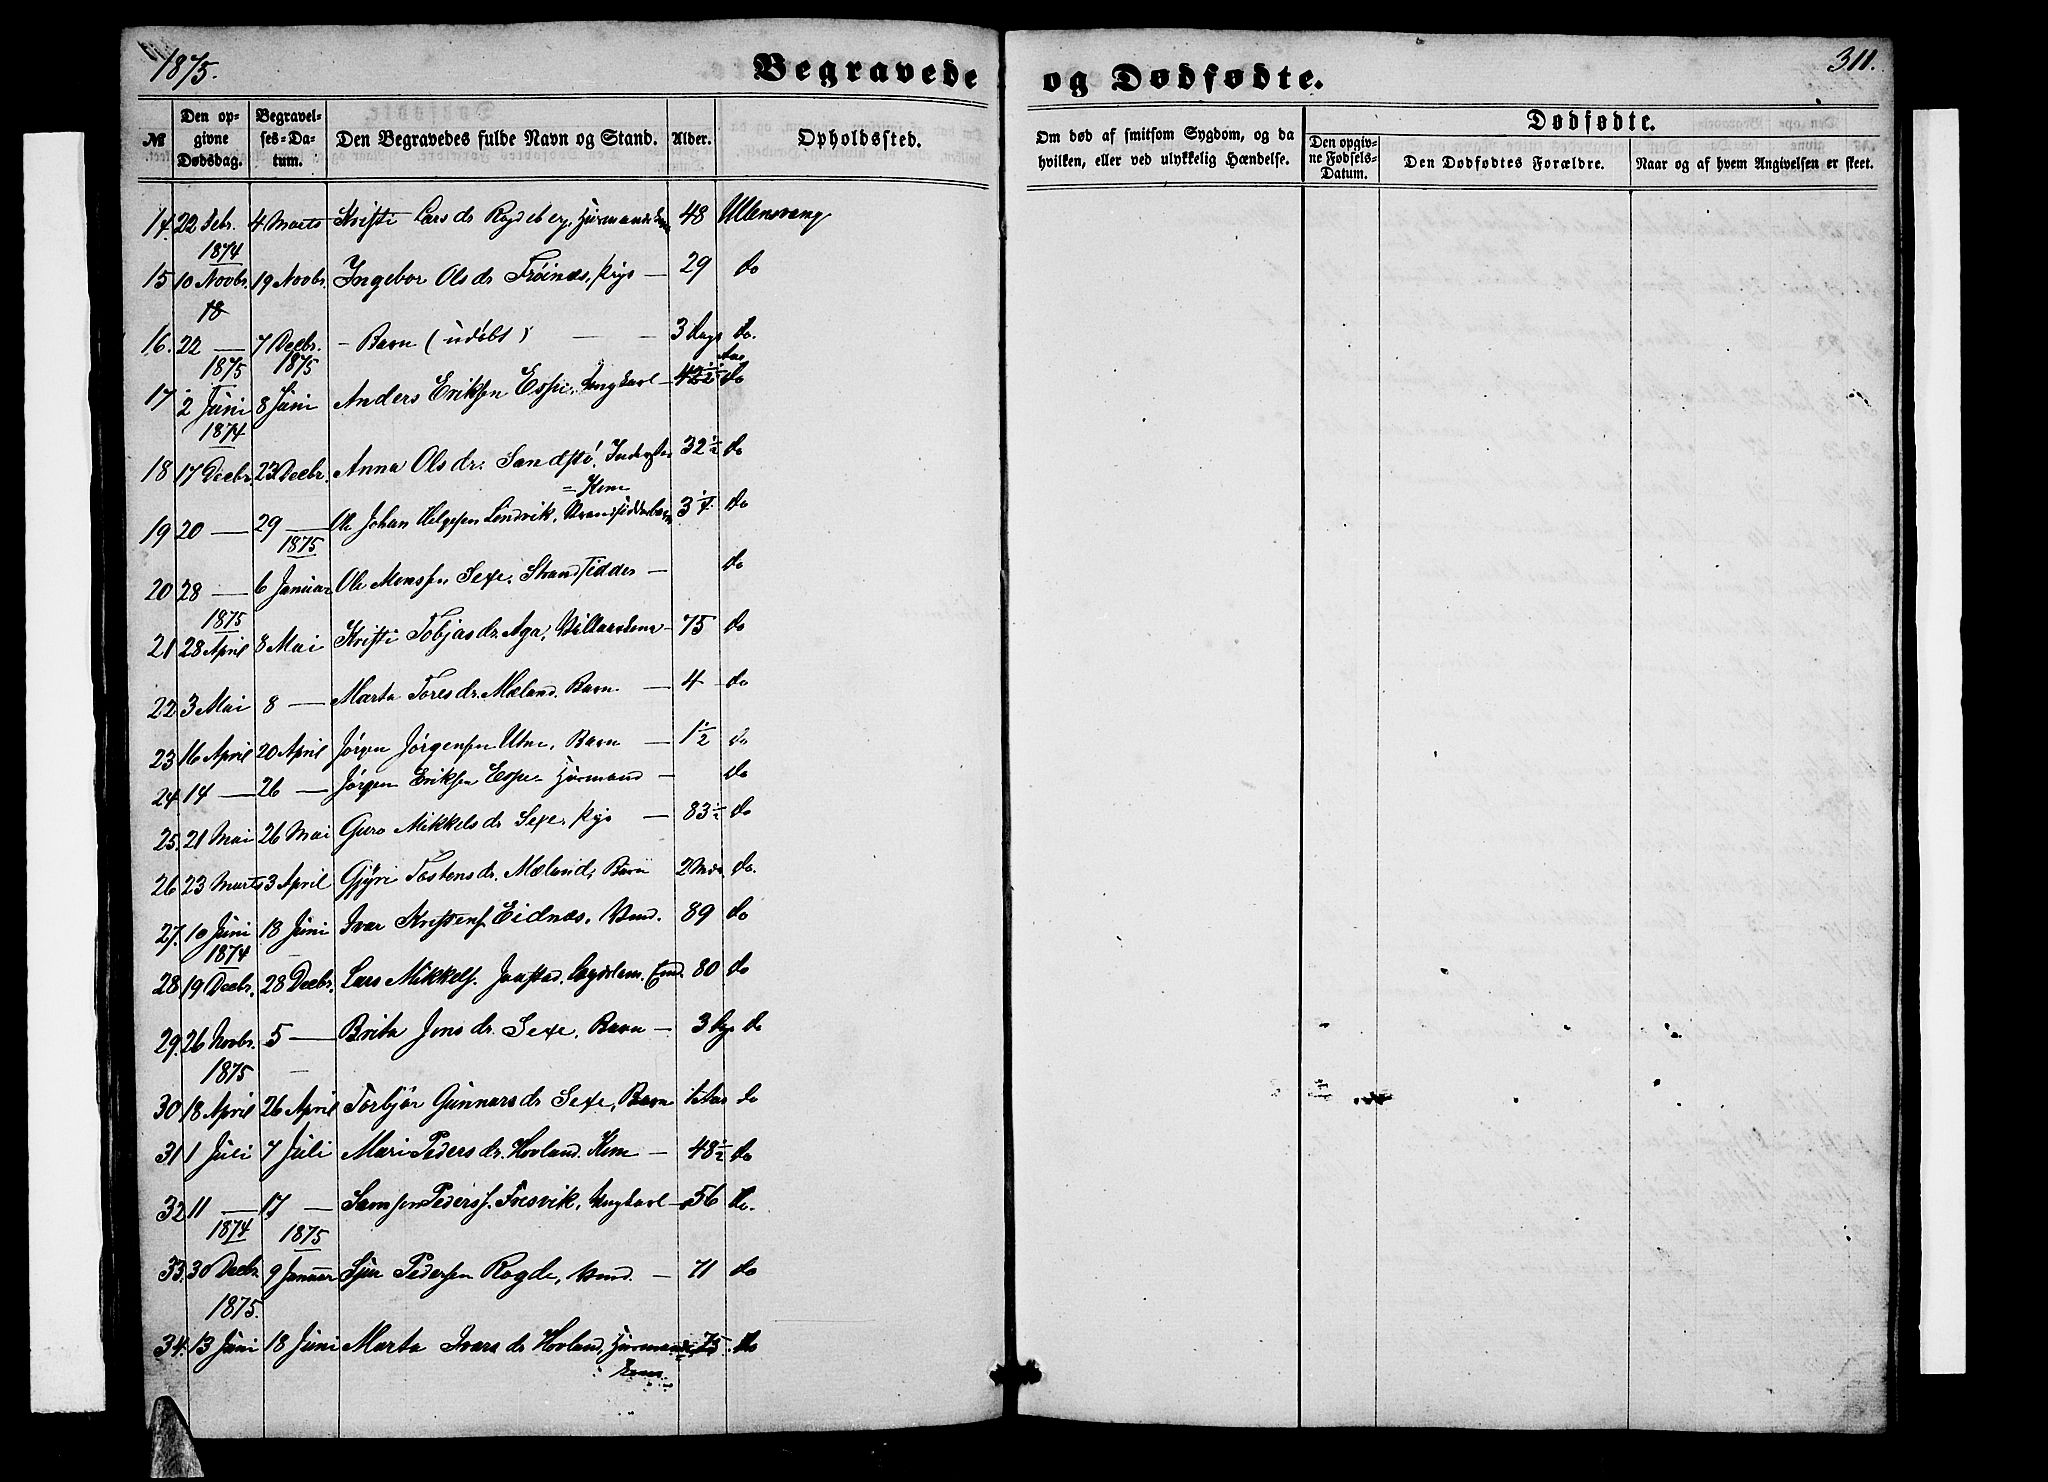 1875.
Begravede og Dødfødte.
311.
№
Den opgivne Dødsdag.
Begravelses-Datum.
Den Begravedes fulde Navn og Stand.
Alder.
Opholdssted.
Om død af smitsom Sygdom, og da hvilken, eller ved ulykkelig Hændelse.
Dødfødte.
Den opgivne Fødsels-Datum.
Den Dødfødtes Forældre.
Naar og af hvem Angivelsen er skeet.
14. 22 Febr. 4 Marts Kristi Lars dr. 48 Ullensvang
1874
15 10 Novbr. 19 Novbr. Ingebor Ols dr Frøinæs, Pige — 29 do
18
16. 22 — 7 Decbr. - Barn (udøbt) — — 3 Dage do.
1875 1875 Aar
17 2 Juni 8 Juni Anders Eriksen Espe, Ungkarl — 42 1/2 do
1874
18 17 Decbr. 23 Decbr. Anna Ols dr. Sandstø, Inderste 32 1/2 do
= Kone
19 20 — 29 — Ole Johan Helgesen 3 1/4 do
1875
20 28 — 6 Januar Ole Monsen Sexe, Strandsidder — do
1875
21 28 April 8 Mai Kristi Tobjas dr. Aga, — 75 do
22 3 Mai 8 — Marta Tores dr. Mæland, Barn — 4 do
23 16 April 20 April Jørgen Jørgensen Utne, Barn — 1 1/2 do
24 14 — 26 — Jørgen Eriksen Espe, Huusmand — do
25. 21 Mai 26 Mai Guro Mikkels dr Sexe, Pige — 83 1/2 do
26 23 Marts 3 April Gjyri Tostens dr. Mæland, Barn 2 Mdr. do.
27. 10 Juni 18 Juni Ivar Kristens. Eidnæs, 89 do
1874
28 19 Decbr. 28 Decbr. Lars Mikkels. Jaastad, 80 do
29. 26 Novbr. 5 — Brita Jons dr. Sexe, Barn — 3 Dge do
1875
30 18 April 26 April Torbjør Gunnars dr Sexe, Barn do
31 1 Juli 7 Juli Mari Peders dr. Hovland, Kone — 48 1/2 do
32 11 — 17 — Samson Peders. Fresvik, Ungkarl — 56 do.
1874 1875
33. 30 Decbr. 9 Januar Sjur Pedersen Rogde, — 71 do
1875.
34. 13 Juni 18 Juni Marta Ivars dr Hovland, Huusmands 75 do
Kone